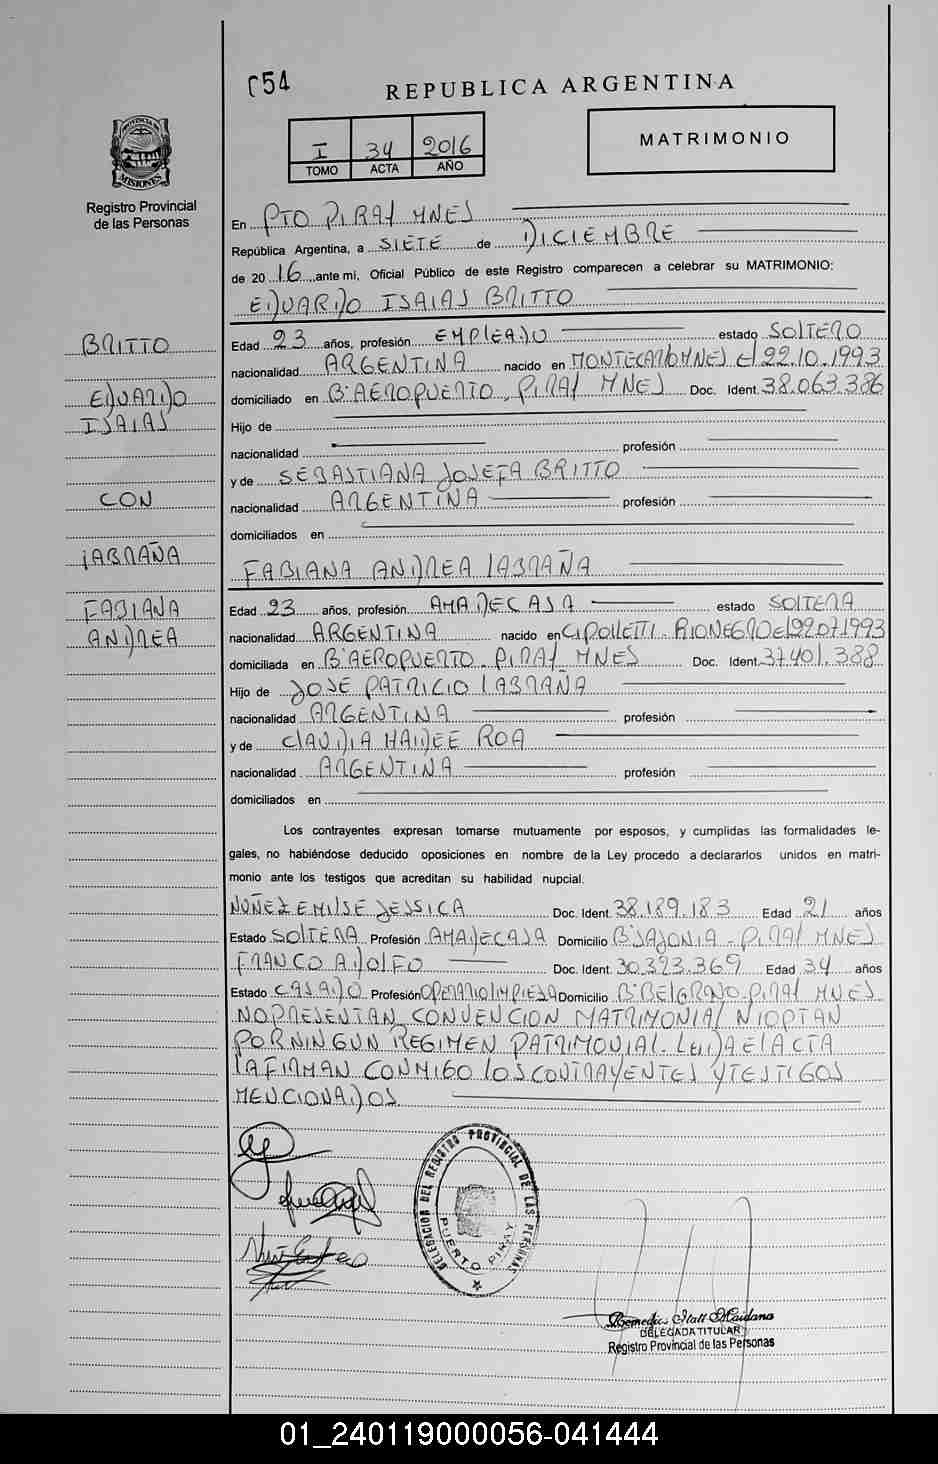 054
REPUBLICA ARGENTINA
I 34 2016
TOMO ACTA AÑO
MATRIMONIO
PROVINCIA DE
MISIONES
Registro Provincial
de las Personas
En PTO PIRAY MNES
República Argentina, a SIETE de DICIEMBRE
de 20 16 ,ante mi, Oficial Público de este Registro comparecen a celebrar su MATRIMONIO:
EDUARDO ISAIAS BRITTO
BRITTO
EDUARDO
ISAIAS
CON
LABRAÑA
FABIANA
ANDREA
Edad 23 años, profesión EMPLEADO estado SOLTERO
nacionalidad ARGENTINA nacido en MONTECARLO MNES el 22.10.1993
domiciliado en Bº AEROPUERTO. PIRAY MNES Doc. Ident. 38.063.386
Hijo de
nacionalidad profesión
y de SEBASTIANA JOSEFA BRITTO
nacionalidad ARGENTINA profesión
domiciliados en
FABIANA ANDREA LABRAÑA
Edad 23 años, profesión AMA DE CASA estado SOLTERA
nacionalidad ARGENTINA nacido en CIPOLLETTI. RIO NEGRO el 22.07.1993
domiciliada en Bº AEROPUERTO. PIRAY MNES Doc. Ident. 37.401.388
Hijo de JOSE PATRICIO LABRAÑA
nacionalidad ARGENTINA profesión
y de CLAUDIA HAIDEE ROA
nacionalidad ARGENTINA profesión
domiciliados en
Los contrayentes expresan tomarse mutuamente por esposos, y cumplidas las formalidades le-
gales, no habiéndose deducido oposiciones en nombre de la Ley procedo a declararlos unidos en matri-
monio ante los testigos que acreditan su habilidad nupcial.
NUÑEZ EMILSE JESSICA Doc. Ident. 38.189.183 Edad 21 años
Estado SOLTERA Profesión AMA DE CASA Domicilio Bº SAJONIA - PIRAY MNES
FRANCO ADOLFO Doc. Ident. 30.323.369 Edad 34 años
Estado CASADO Profesión OPERARIO LIMPIESA Domicilio Bº BELGRANO. PIRAY MNES
NO PRESENTAN CONVENCION MATRIMONIAL NI OPTAN
POR NINGUN REGIMEN PATRIMONIAL. LEIDA EL ACTA
LA FIRMAN CONMIGO LOS CONTRAYENTES Y TESTIGOS
MENCIONADOS
DELEGACION DEL REGISTRO PROVINCIAL DE LAS PERSONAS
PUERTO PIRAY
Remedios Itatí Maidana
DELEGADA TITULAR
Registro Provincial de las Personas
01_240119000056-041444